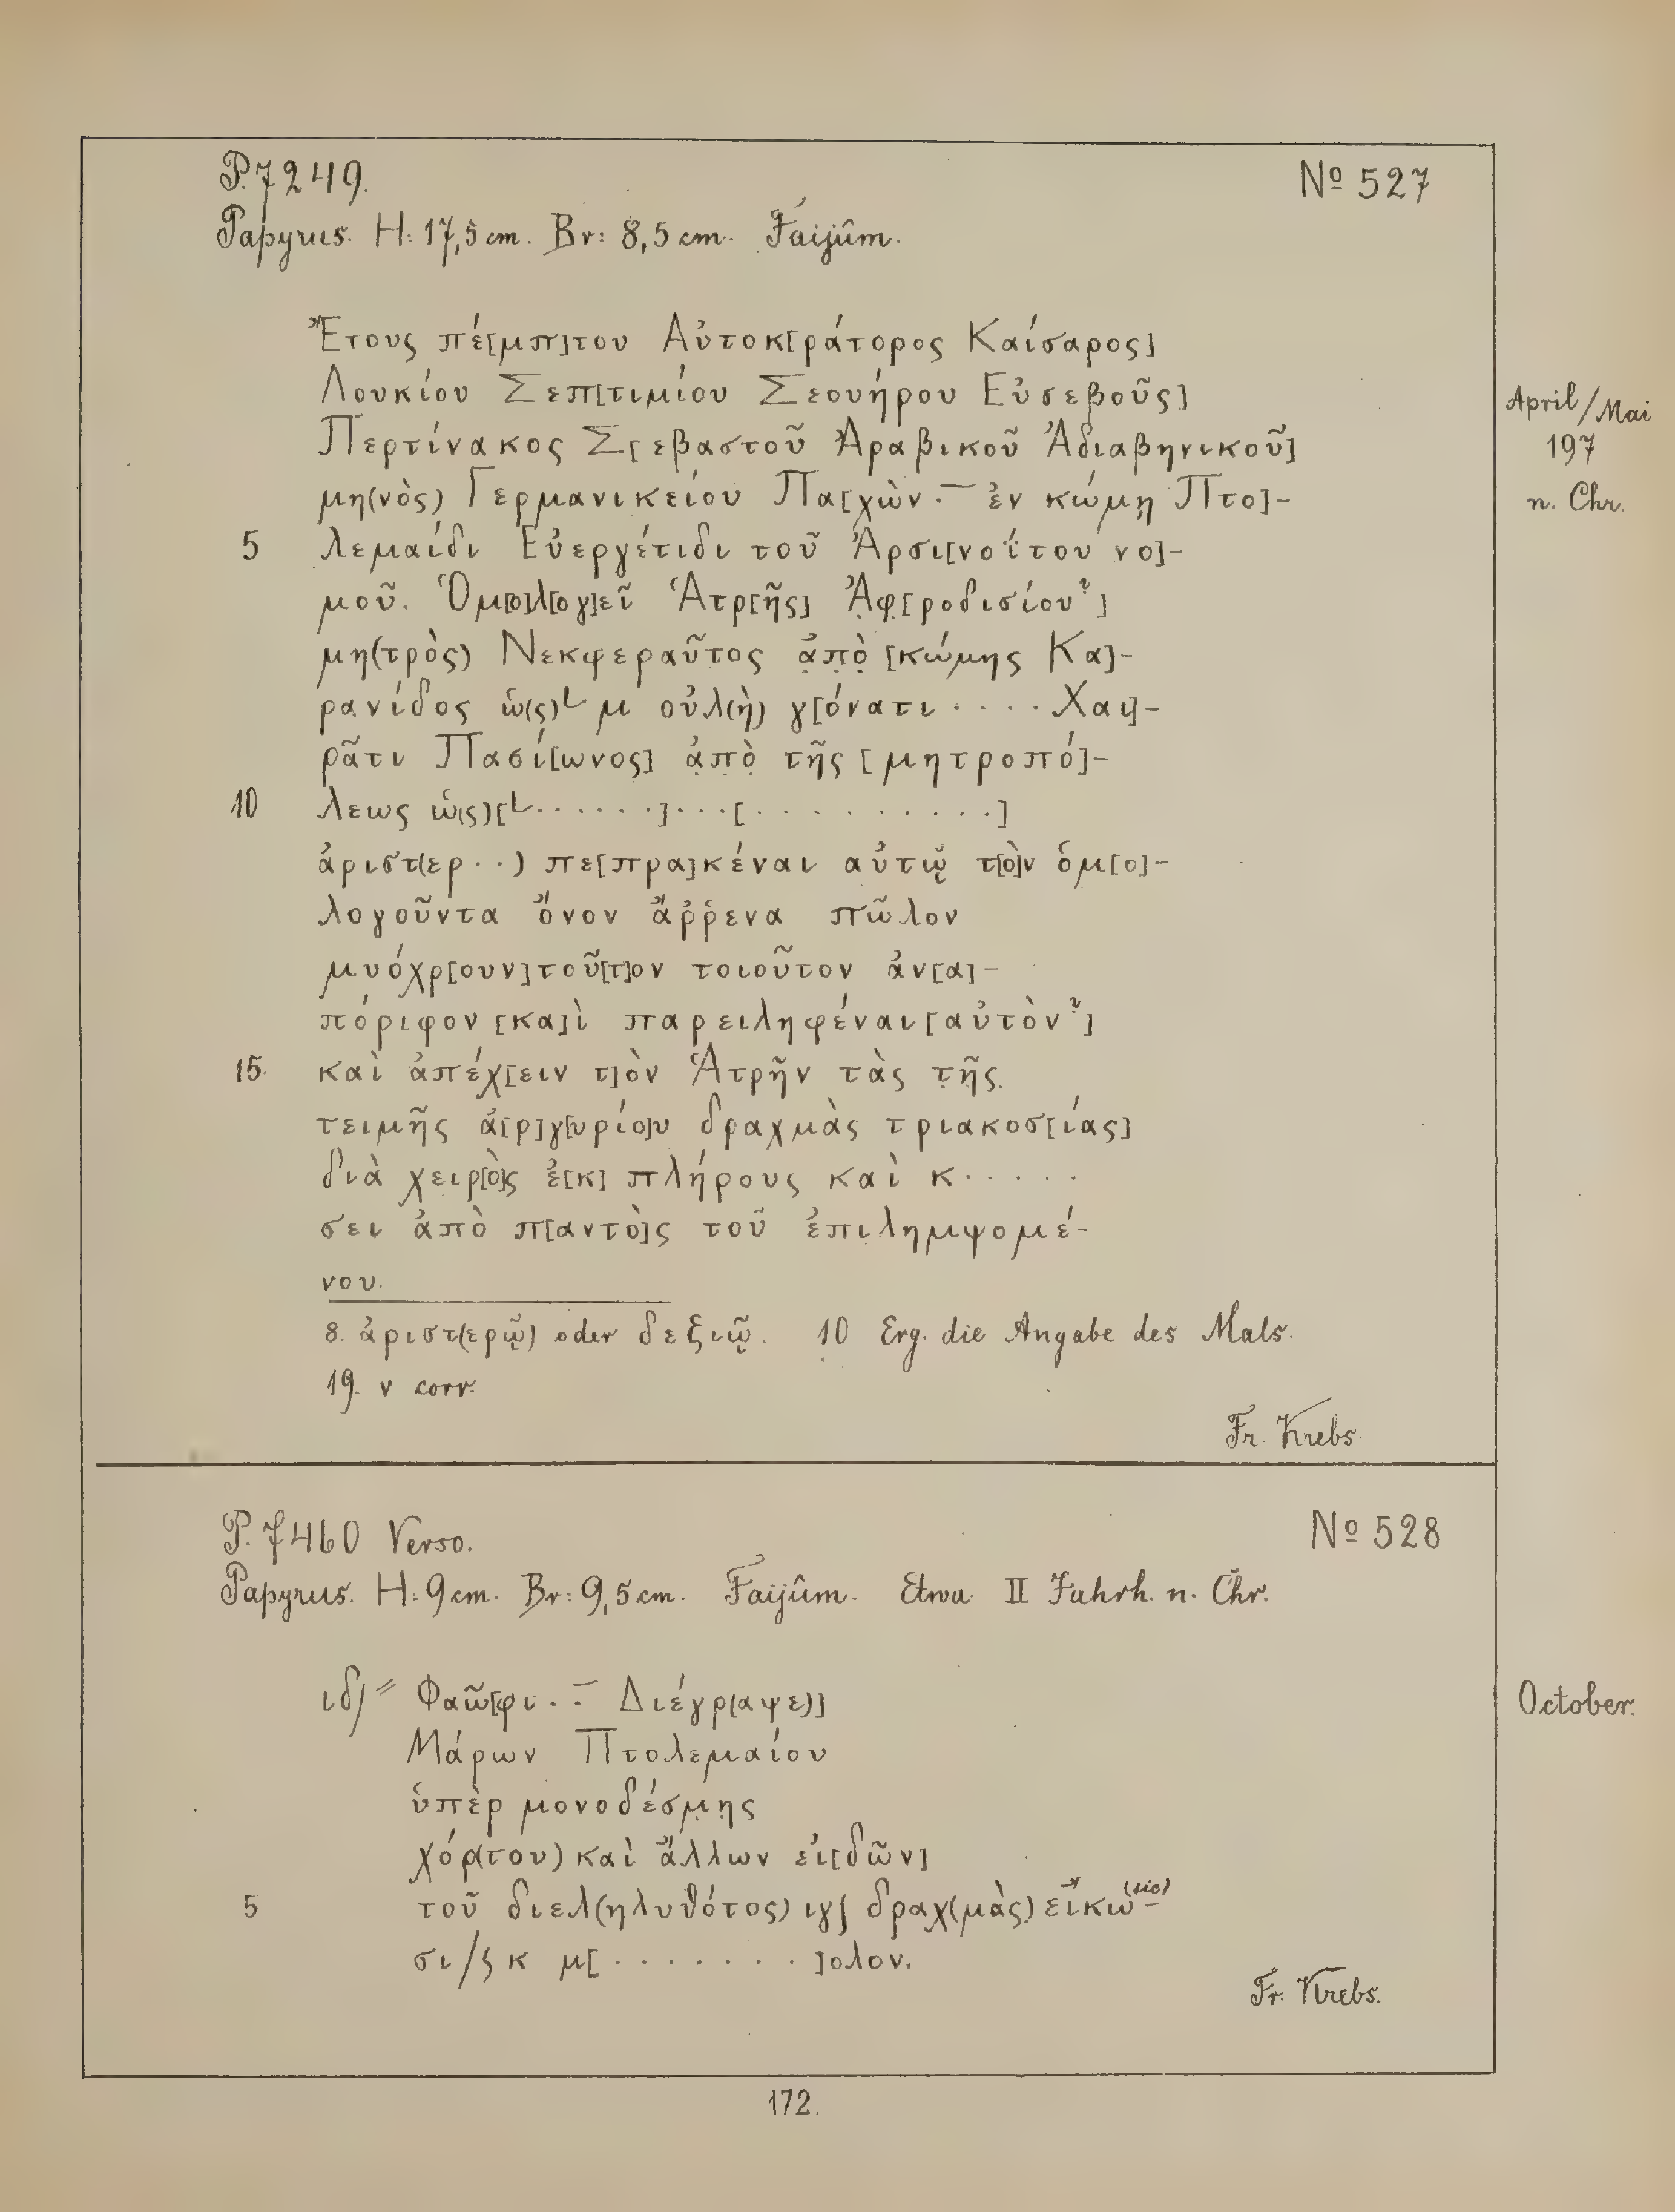 P. 7249. № 527
Papyrus. H: 17,5 cm. Br: 8,5 cm. Faijûm.
Ἔτους πέ[μπ]του Αὐτοκ[ράτορος Καίσαρος]
Λουκίου Σεπ[τιμίου Σεουήρου Εὐσεβοῦς]
Περτίνακος Σ[εβαστοῦ Ἀραβικοῦ Ἀδιαβηνικοῦ]
April/Mai
197
n. Chr.
μη(νὸς) Γερμανικείου Πα[χὼν . ¯ ἐν κώμῃ Πτο]-
5 λεμαίδι Εὐεργέτιδι τοῦ Ἀρσι[νοΐτου νο]-
μοῦ. Ὁμ[ο]λ[ογ]εῖ Ἁτρ[ῆς] Ἀφ̣[ροδισίου?]
μη(τρὸς) Νεκφεραῦτος ἀ̣π̣ὸ̣ [κώμης Κα]-
ρανίδος ὡ(ς) L μ οὐλ(ὴ) γ[όνατι . . . . Χαι]-
ρᾶτι Πασί[ωνος] ἀ̣π̣ὸ̣ τῆς [μητροπό]-
10 λεως ὡ(ς) [L . . . . . . ] . . . [ . . . . . . . . . . ]
ἀριστ(ερ . . ) πε[πρα]κέναι αὐτῷ τ[ὸ]ν ὁμ[ο]-
λογοῦντα ὄνον ἄῤῥενα πῶλον
μυόχρ[ουν] τοῦ[τ]ον τοιοῦτον ἀν[α]-
πόριφον [κα]ὶ παρειληφέναι [αὐτὸν?]
15 καὶ ἀπέχ[ειν τ]ὸν Ἁτρῆν τὰς τ̣ῆ̣ς̣
τειμῆς ἀ[ρ]γ[υρίο]υ δραχμὰς τριακοσ[ίας]
διὰ χειρ[ὸ]ς ἐ[κ] πλήρους καὶ κ . . . . .
σει ἀπὸ π[αντὸ]ς τοῦ ἐπιλημψομέ-
νου.
8. ἀριστ(ερῷ) oder δεξιῷ. 10 Erg. die Angabe des Mals.
19. ν corr.
Fr. Krebs.
P. 7460 Verso. № 528
Papyrus. H: 9 cm. Br: 9,5 cm. Faijûm. Etwa II Jahrh. n. Chr.
ιδ∫〃 Φαῶ[φι . . ¯ Διέγρ(αψε)]
October.
Μάρων Πτολεμαίου
ὑπὲρ μονοδέσμ̣η̣ς
χόρ(του) καὶ ἄλλων εἰ[δῶν]
5 τοῦ διελ(ηλυθότος) ιγ∫ δραχ(μὰς) εἴκω (sic)-
σι /ϛ κ μ[ . . . . . . . . ]ολον.
Fr. Krebs.
172.